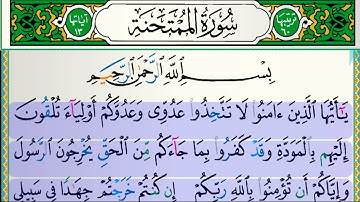 ترتيبها ٦٠ سُورَةُ الْمُمْتَحِنَةِ آياتها ١٣
بِسْمِ اللَّهِ الرَّحْمَٰنِ الرَّحِيمِ
يَٰٓأَيُّهَا الَّذِينَ ءَامَنُوا لَا تَتَّخِذُوا عَدُوِّى وَعَدُوَّكُمْ أَوْلِيَآءَ تُلْقُونَ
إِلَيْهِم بِالْمَوَدَّةِ وَقَدْ كَفَرُوا بِمَا جَآءَكُم مِّنَ الْحَقِّ يُخْرِجُونَ الرَّسُولَ
وَإِيَّاكُمْ أَن تُؤْمِنُوا بِاللَّهِ رَبِّكُمْ إِن كُنتُمْ خَرَجْتُمْ جِهَٰدًا فِى سَبِيلِى